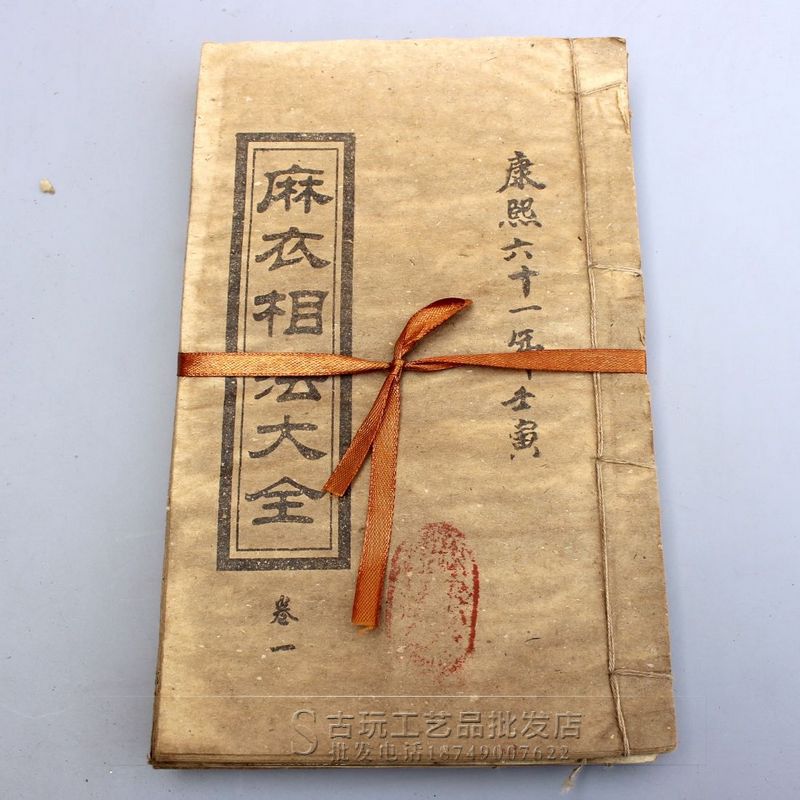 康熙六十一年壬寅
麻衣相法大全
卷一
S古玩工艺品批发店
批发电话18749007622